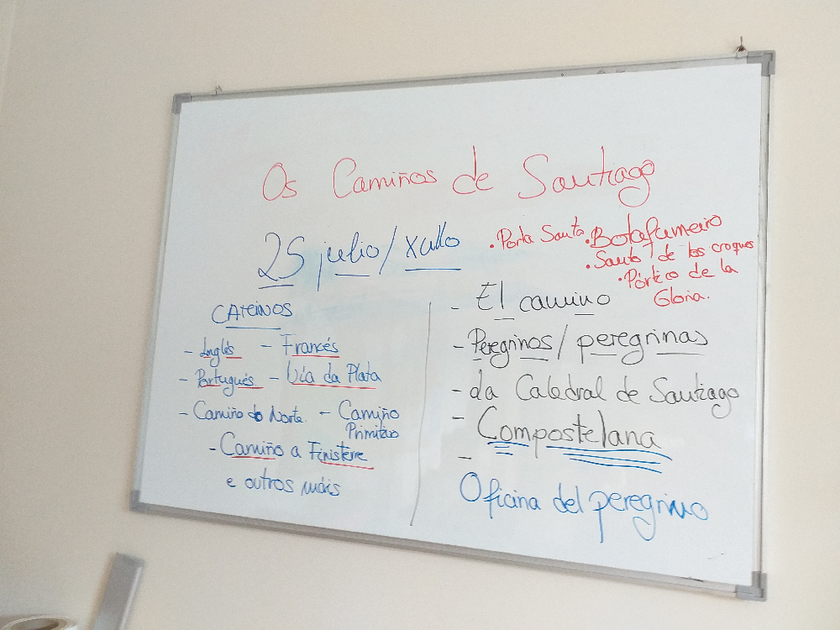 Os Camiños de Santiago
25 julio / xullo
• Porta Santa
• Botafumeiro
• Santo 1 de los croques
• Pórtico de la
Gloria.
CAMIÑOS
- Inglés - Francés
- Portugués - Vía da Plata
- Camiño do Norte - Camiño
Primitivo
- Camiño a Finisterre
e outros máis
- El camino
- Peregrinos / peregrinas
- La Catedral de Santiago
- Compostelana
-
Oficina del peregrino